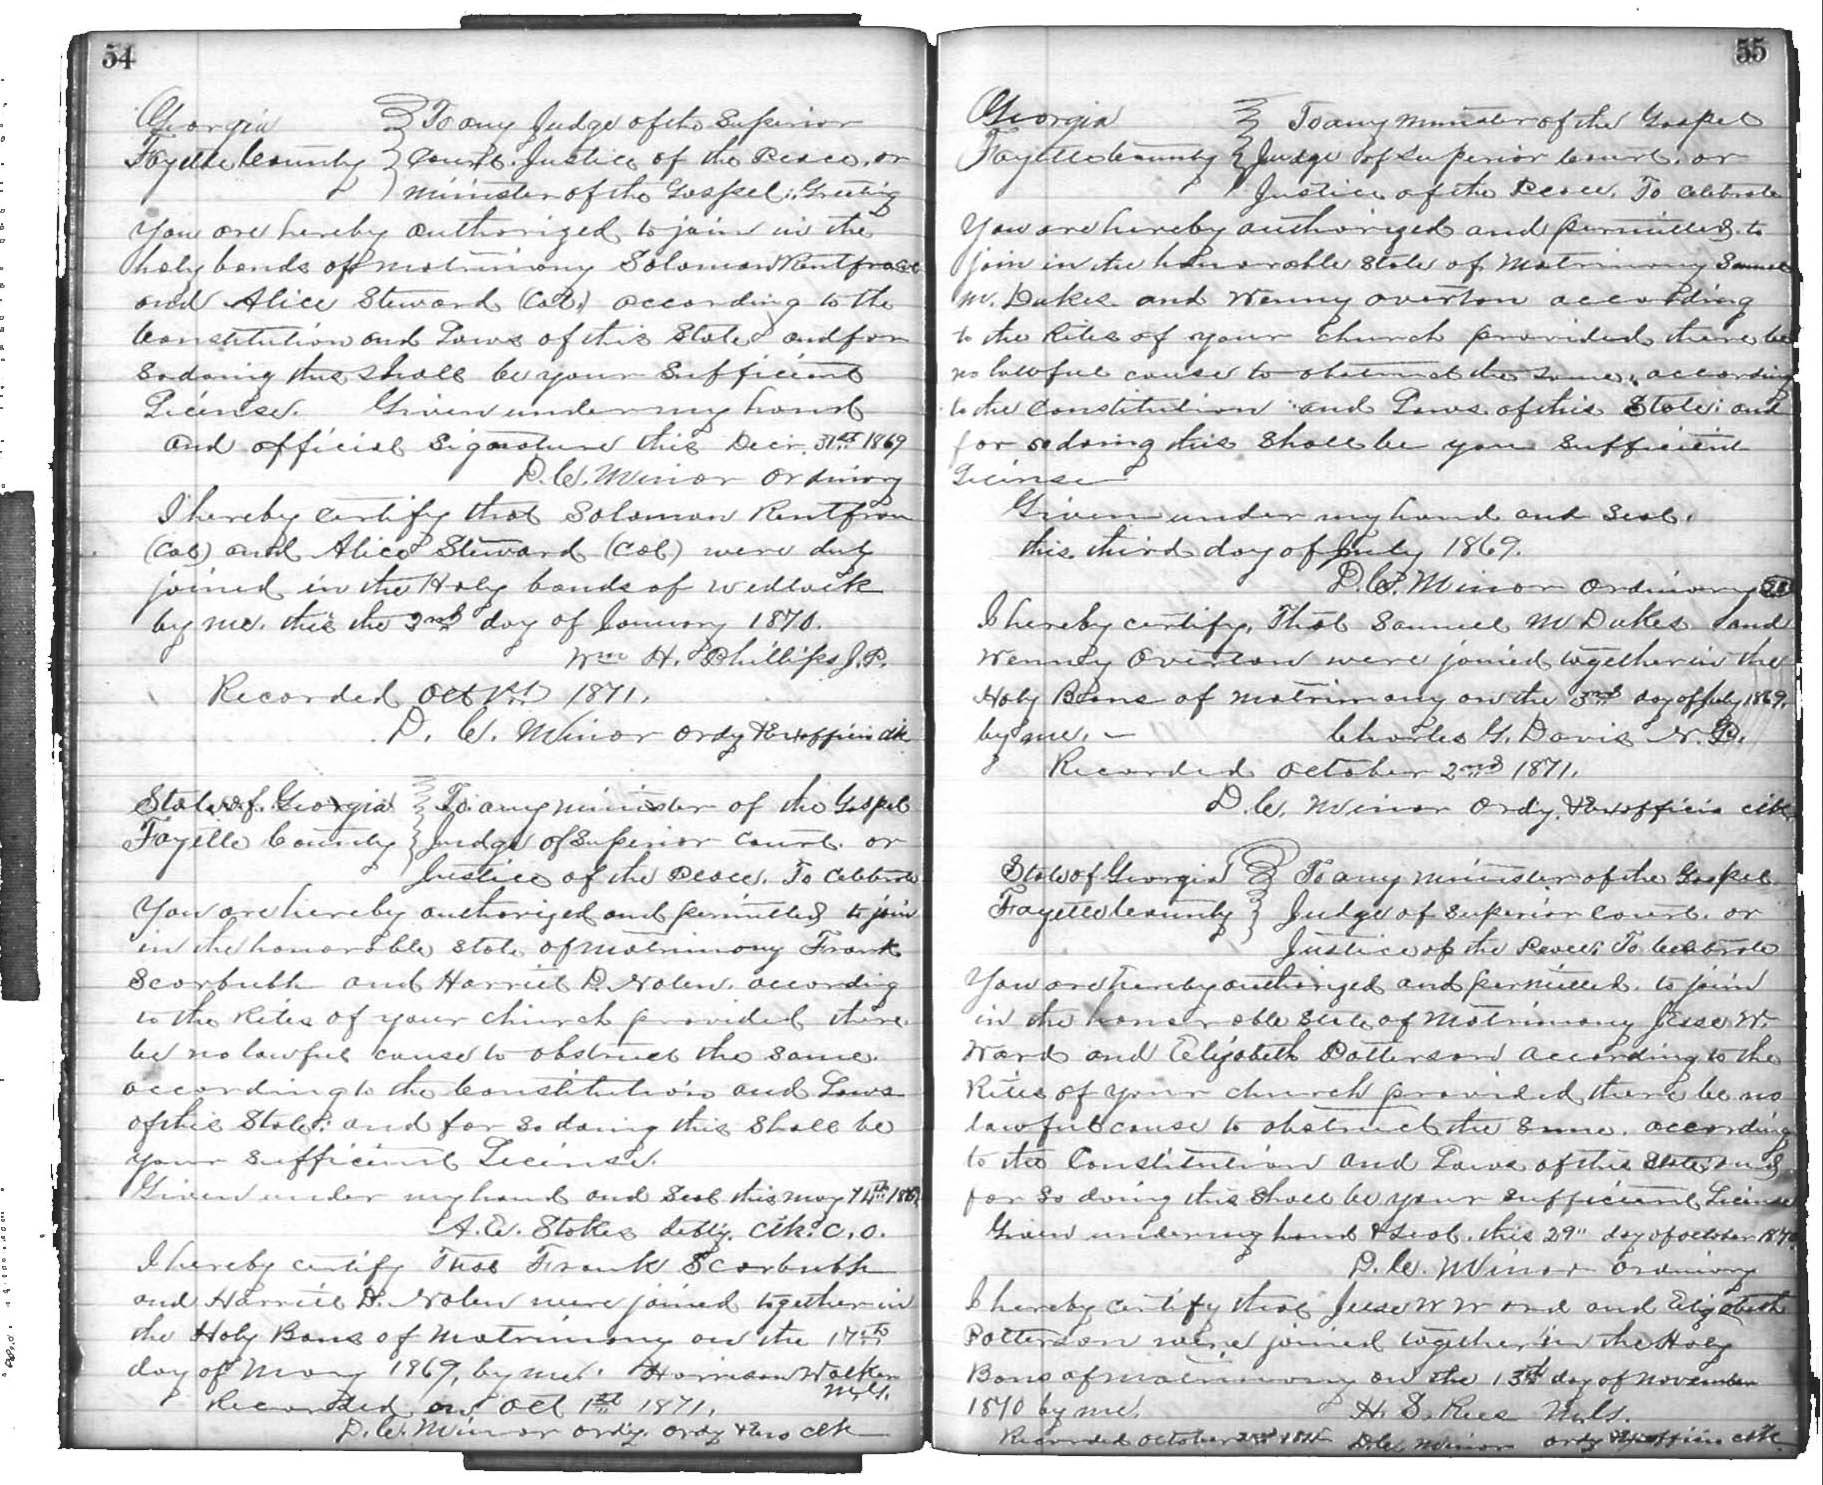 54
Georgia } To any Judge of the Superior
Fayette County } Court. Justice of the Peace, or
minister of the Gospel: Greeting
You are hereby authorized to join in the
holy bonds of matrimony Solomon Rentfrow
and Alice Steward (Col.) according to the
Constitution and Laws of this State and for
so doing this shall be your sufficient
License. Given under my hand
and official signature this Decr. 31st 1869
D. C. Minor Ordinary
I hereby certify that Solomon Rentfrow
(Col) and Alice Steward (Col) were duly
joined in the Holy bonds of wedlock
by me. this the 2nd day of January 1870.
Wm H. Phillips J. P.
Recorded Oct 1st 1871.
D. C. Minor Ordy & Exofficio clk
State of Georgia } To any minister of the Gospel
Fayette County } Judge of Superior Court. or
Justice of the Peace. To Celebrate
You are hereby authorized and permitted to join
in the honorable state of matrimony Frank
Scarbuth and Harriet D. Nolen. according
to the Rites of your church provided there
be no lawful cause to obstruct the same.
according to the Constitution and Laws
of this State: and for so doing this shall be
your sufficient License.
Given under my hand and Seal this may 14th 1869
A. C. Stokes debty. Clk. C. O.
I hereby certify That Frank Scarbuth
and Harriet D. Nolen were joined together in
the Holy Bans of Matrimony on the 17th
day of May 1869, by me. Harrison Walker
M.G.
Recorded on Oct 1st 1871.
D. C. Minor ordy. Ordy & Exo clk
55
Georgia } To any minister of the Gospel
Fayette County } Judge of Superior Court. or
Justice of the Peace. To Celebrate
You are hereby authorized and permitted to
join in the honorable state of Matrimony Samuel
M. Dukes and Wenny Overton according
to the Rites of your church provided there be
no lawful cause to obstruct the same, according
to the Constitution and Laws of this State: and
for so doing this shall be you sufficient
License
Given under my hand and Seal.
this third day of July 1869.
D. C. Minor Ordinary
I hereby certify, That Samuel M Dukes and
Wenny Overton were joined together in the
Holy Bans of matrimony on the 3rd day of July 1869.
by me. – Charles G. Davis N. P.
Recorded October 2nd 1871.
D. C. Minor Ordy. & Exofficio clk
State of Georgia } To any minister of the Gospel
Fayette County } Judge of Superior Court. or
Justice of the Peace: To Celebrate
You are hereby authorized and permitted. to join
in the honorable State of Matrimony Jesse W.
Ward and Elizabeth Patterson according to the
Rites of your church provided there be no
lawful cause to obstruct the same. according
to the Constitution and Laws of this State: and
for so doing this shall be your sufficient License
Given under my hand & Seal. this 29" day of October 1870
D. C. Minor Ordinary
I hereby certify that Jesse W Ward and Elizabeth
Patterson were joined together in the Holy
Bans of matrimony on the 13th day of November
1870 by me. H. S. Rees M.G.
Recorded October 2nd 1871 D. C. Minor Ordy & Exofficio clk.